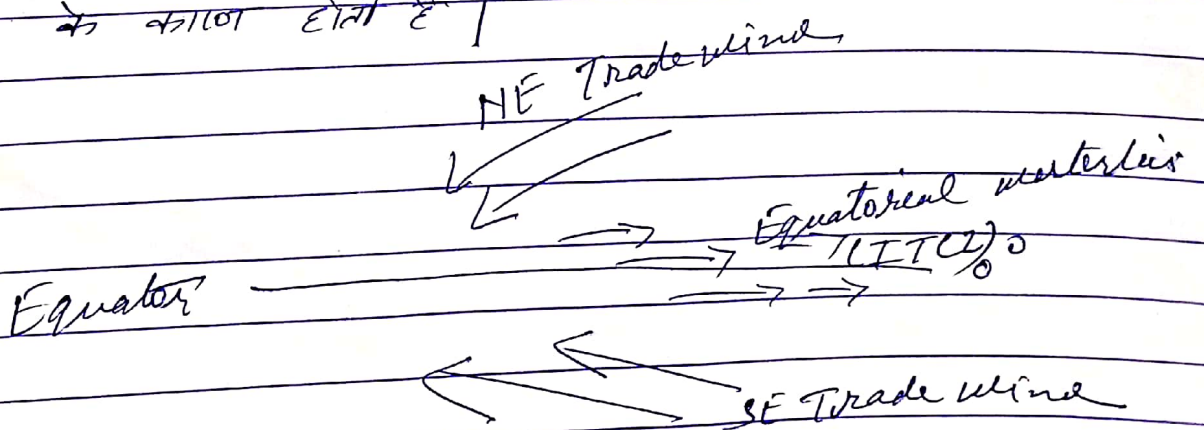 के कारण होता है |
NE Trade wind
Equatorial westerlies
(ITCZ)
Equator
SE Trade wind